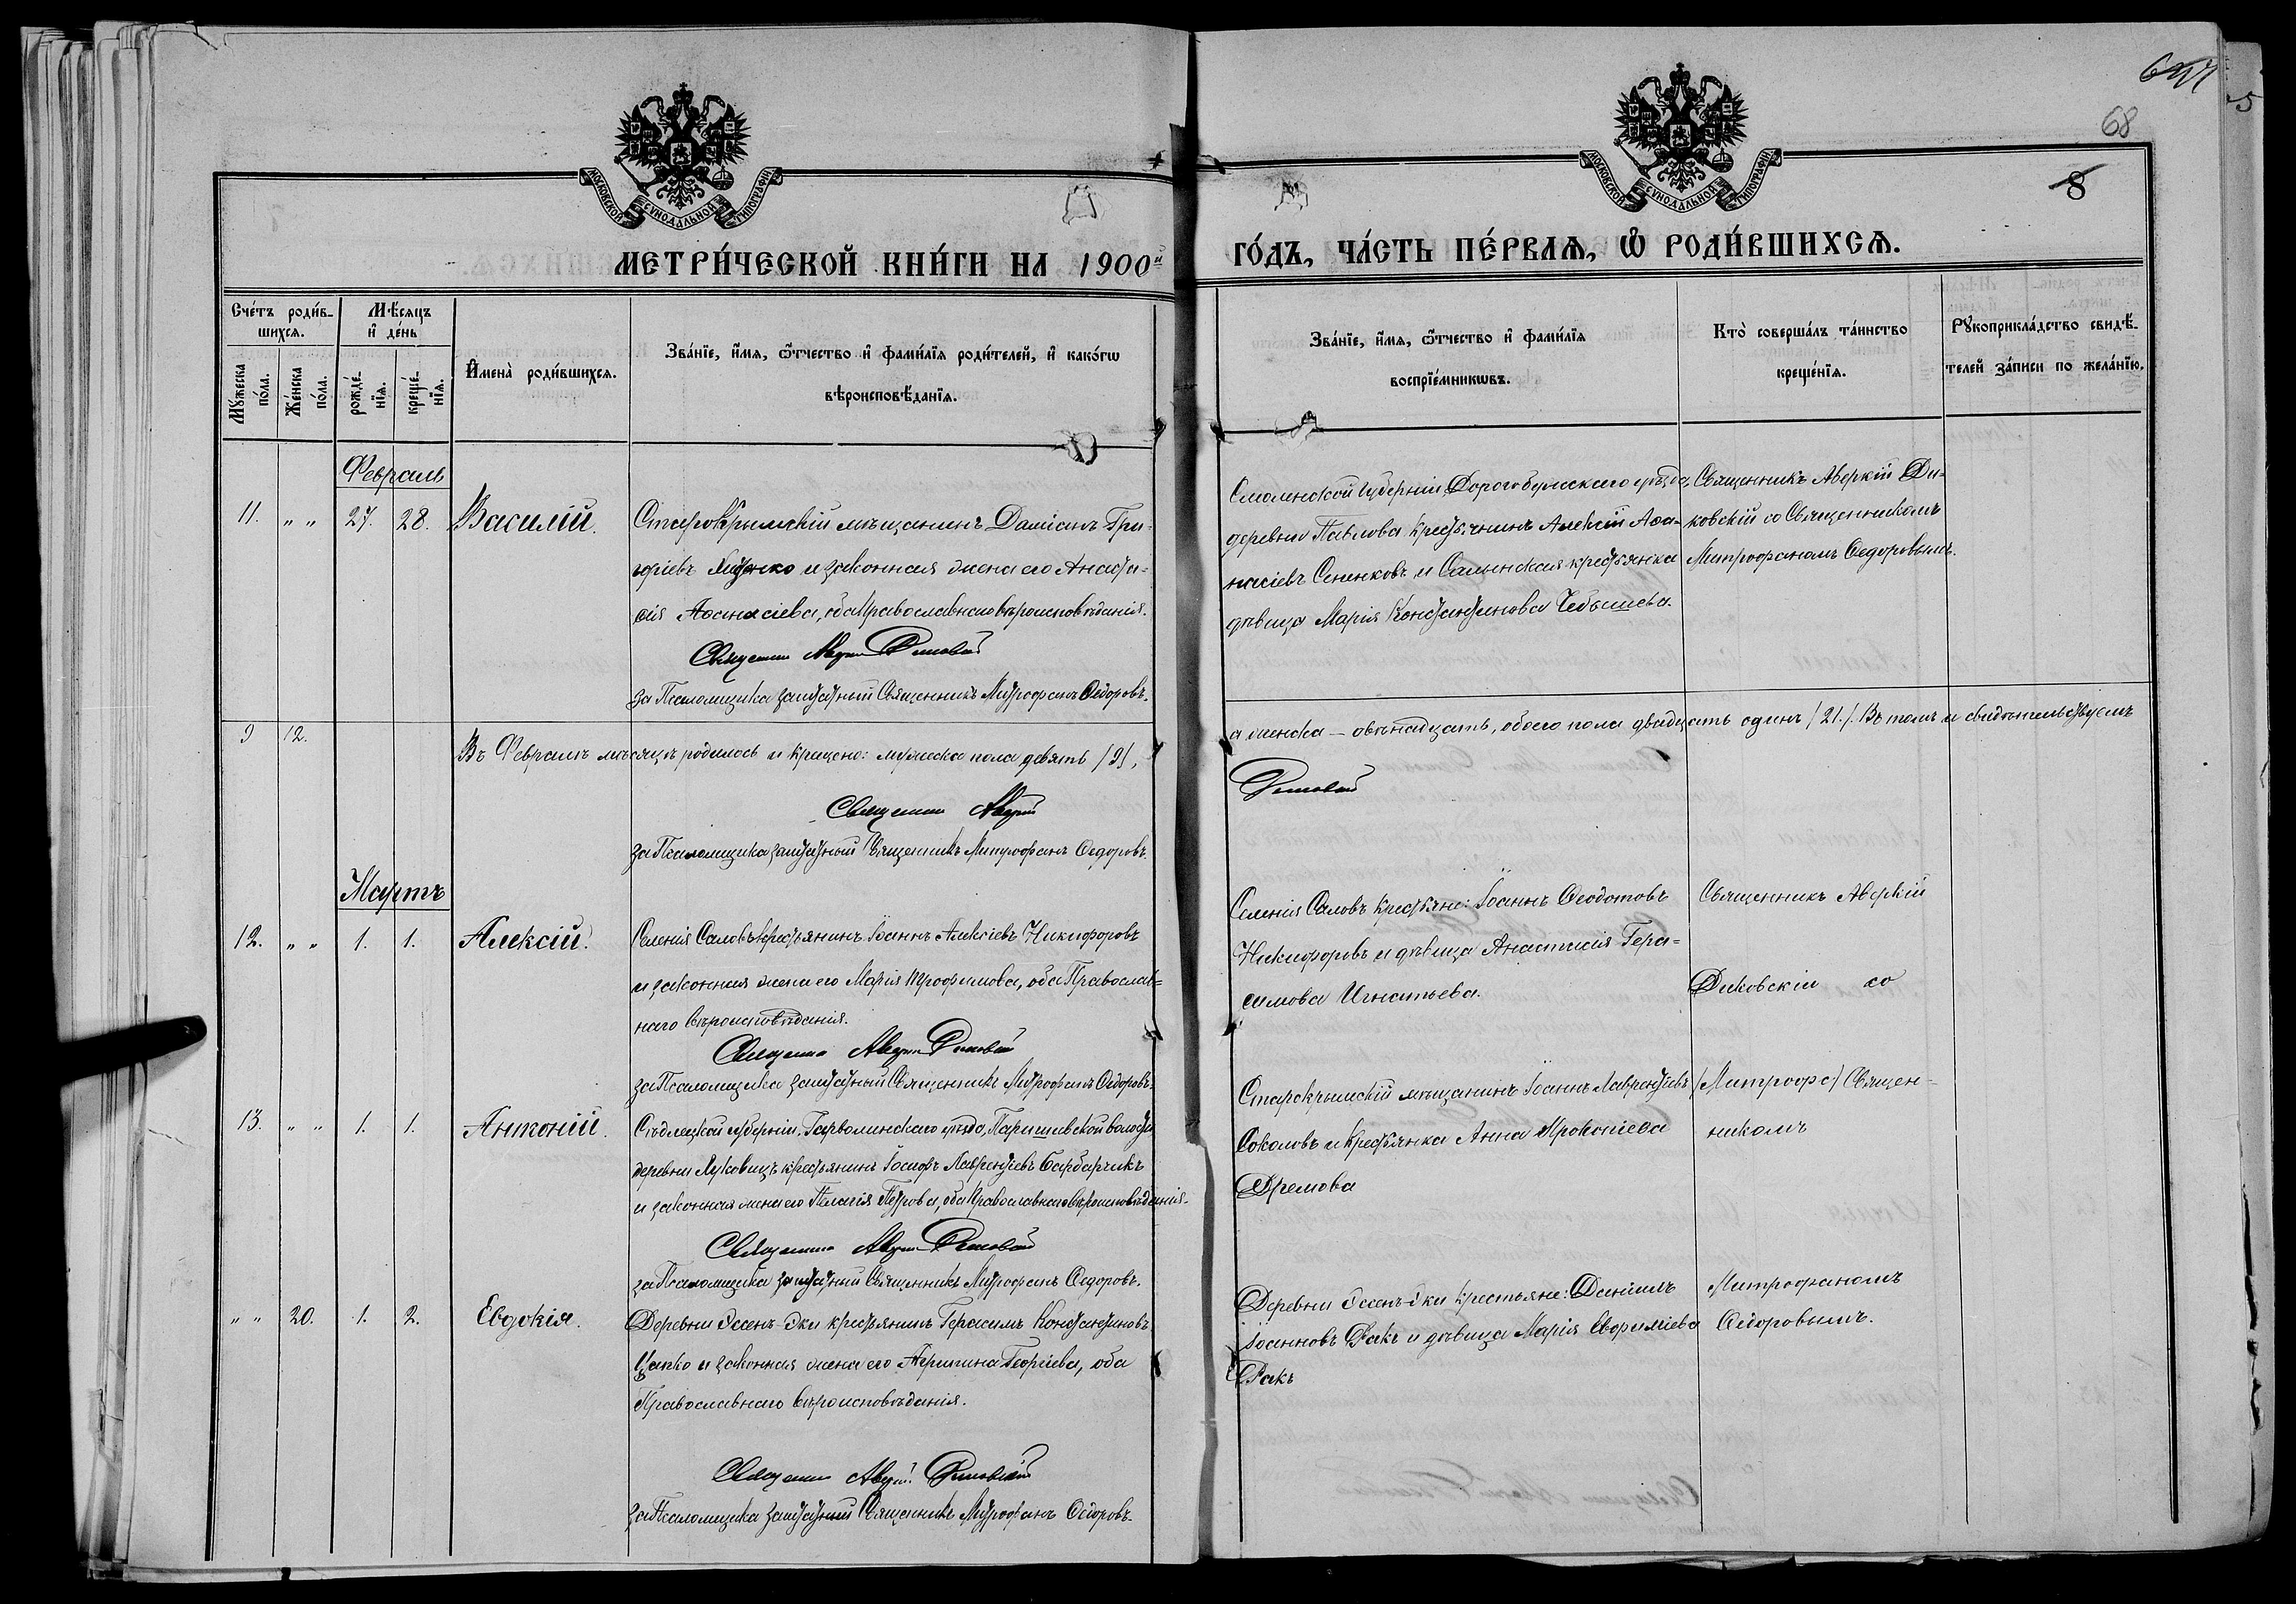 647
68
8
МОСКОВСКОЙ СУНОДАЛЬНОЙ ТИПОГРАФІИ
МОСКОВСКОЙ СУНОДАЛЬНОЙ ТИПОГРАФІИ
МЕТРИ́ЧЕСКОЙ КНИ́ГИ НА 1900й
ГО́ДЪ, ЧА́СТЬ ПЕ́РВАѦ, Ѽ РОДИ́ВШИХСѦ.
Сче́тъ роди́в-
шихсѧ.
Мѣ́сѧцъ
и҆ де́нь
Мꙋ́жеска
по́ла.
Же́нска
по́ла.
рожде́-
нїѧ.
креще́-
нїѧ.
И҆мена̀ роди́вшихсѧ.
Зва́нїе, и҆́мѧ, ѻ҆́тчество и҆ фами́лїѧ роди́телей, и҆ како́гѡ
вѣроисповѣ́данїѧ.
Зва́нїе, и҆́мѧ, ѻ҆́тчество и҆ фами́лїѧ
воспрїе́мникѡвъ.
Кто̀ соверша́лъ та́инство
креще́нїѧ.
Рꙋкоприкла́дство свидѣ́-
телей за́писи по жела́нїю.
Февраль
11. „ „ 27. 28. Василій.
Старокрымскій мѣщанинъ Даміанъ Гри-
горіевъ и законная жена его Анаста-
сія Аѳанасіева, оба Православнаго вѣроисповѣданія.
Священникъ Аверкій Диковскій
за Псаломщика заштатный Священникъ Митрофанъ Ѳедоровъ.
Смоленской губерніи Дорогобужскаго уѣзда,
деревни Павлова крестьянинъ Алексій Аѳа-
насіевъ Сененковъ и Салынская крестьянка
дѣвица Марія Константинова Чебышева.
Священникъ Аверкій Ди-
ковскій со Священникомъ
Митрофаномъ Ѳедоровымъ.
9 12.
Въ Февралѣ мѣсяцѣ родилось и крещено: мужеска пола девять /9/,
а женска — двѣнадцать, обоего пола двадцать одинъ /21/. Въ томъ и свидѣтельствуемъ
Священникъ Аверкій
Диковскій
за Псаломщика заштатный Священникъ Митрофанъ Ѳедоровъ.
Мартъ
12. „ „ 1. 1. Алексій.
Селенія Саловъ крестьянинъ Іоаннъ Алексіевъ Никифоровъ
и законная жена его Марія Трофимова, оба Православ-
наго вѣроисповѣданія.
Священникъ Аверкій Диковскій
за Псаломщика заштатный Священникъ Митрофанъ Ѳедоровъ.
Селенія Саловъ крестьяне: Іоаннъ Ѳеодотовъ
Никифоровъ и дѣвица Анастасія Гера-
симова Игнатьева.
Священникъ Аверкій
Диковскій со
13. „ „ 1. 1. Антоній.
Сѣдлецкой губерніи, Гарволинскаго уѣзда, Паришевской волости
деревни Луковицъ крестьянинъ Іосифъ Лаврентіевъ Барбарчикъ
и законная жена его Пелагія Петрова, оба Православнаго вѣроисповѣданія.
Священникъ Аверкій Диковскій
за Псаломщика заштатный Священникъ Митрофанъ Ѳедоровъ.
Старокрымскій мѣщанинъ Іоаннъ Лаврентіевъ
Соколовъ и крестьянка Анна Прокопіева
Дремова
/Митрофа/ Священ-
никомъ
„ „ 20. 1. 2. Евдокія.
Деревни Эссенъ-Эки крестьянинъ Герасимъ Константиновъ
Цапко и законная жена его Агрипина Георгіева, оба
Православнаго вѣроисповѣданія.
Священникъ Аверкій Диковскій
за Псаломщика заштатный Священникъ Митрофанъ Ѳедоровъ.
Деревни Эссенъ-Эки крестьяне: Даніилъ
Іоанновъ Ракъ и дѣвица Марія Евфиміева
Ракъ
Митрофаномъ
Ѳедоровымъ.